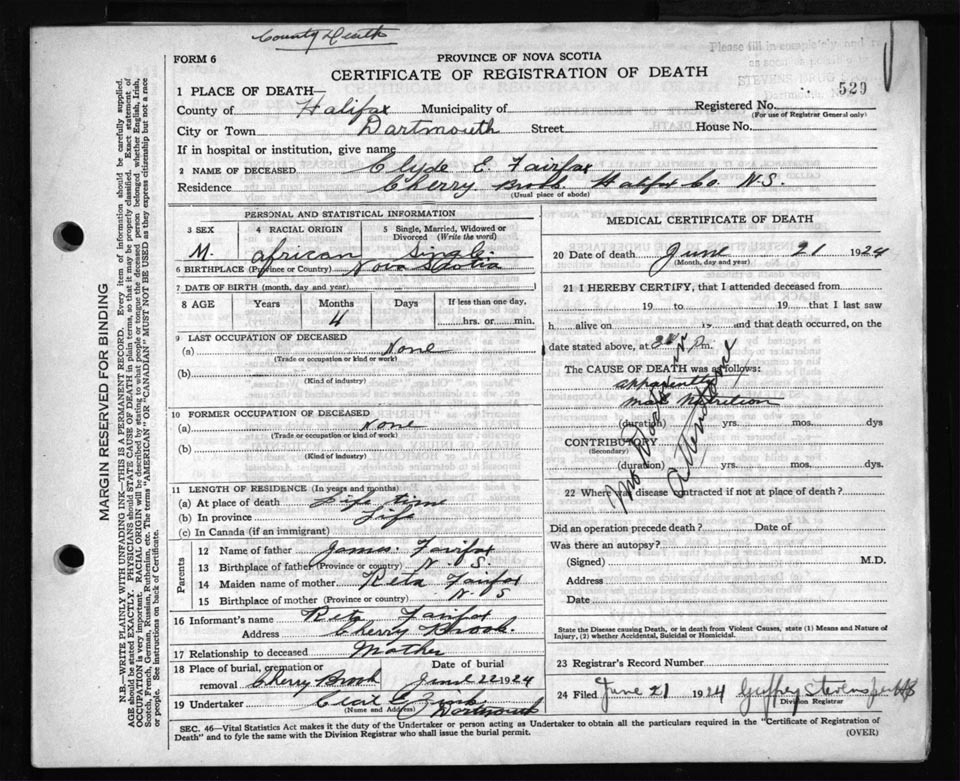 County Death
FORM 6
PROVINCE OF NOVA SCOTIA
CERTIFICATE OF REGISTRATION OF DEATH
529
1 PLACE OF DEATH—
County of Halifax Municipality of Registered No.
(For use of Registrar General only)
City or Town Dartmouth Street House No.
If in hospital or institution, give name
2 NAME OF DECEASED Clyde E. Fairfax
Residence Cherry Brook. Halifax Co. N.S.
(Usual place of abode)
PERSONAL AND STATISTICAL INFORMATION
3 SEX 4 RACIAL ORIGIN 5 Single, Married, Widowed or Divorced (Write the word)
M. african Single
6 BIRTHPLACE (Province or Country) Nova Scotia
7 DATE OF BIRTH (month, day and year)
8 AGE Years Months Days If less than one day,
4 hrs. or min.
9 LAST OCCUPATION OF DECEASED
(a) None
(Trade or occupation or kind or work)
(b)
(Kind of industry)
10 FORMER OCCUPATION OF DECEASED
(a) None
(Trade or occupation or kind of work)
(b)
(Kind of industry)
11 LENGTH OF RESIDENCE (In years and months)
(a) At place of death Life time
(b) In province Life
(c) In Canada (if an immigrant)
Parents
12 Name of father James. Fairfax
13 Birthplace of father (Province or country) N. S.
14 Maiden name of mother Reta Fairfax
15 Birthplace of mother (Province or country) N. S
16 Informant's name Reta Fairfox
Address Cherry Brook.
17 Relationship to deceased Mother
18 Place of burial, cremation or removal Cherry Brook Date of burial June 22 1924
19 Undertaker Zink
(Name and Address) Dartmouth
MEDICAL CERTIFICATE OF DEATH
20 Date of death June 21 1924
(Month, day and year)
21 I HEREBY CERTIFY, that I attended deceased from
19 to 19 that I last saw
h alive on 19 and that death occurred, on the
date stated above, at Pm.
The CAUSE OF DEATH was as follows:
apparently
mal Nutrition
(duration) yrs. mos. dys
CONTRIBUTORY
(Secondary)
(duration) yrs. mos. dys.
No Physician in
attendance
22 Where was disease contracted if not at place of death?
Did an operation precede death? Date of
Was there an autopsy?
(Signed) M.D.
Address
Date
State the Disease causing Death, or in death from Violent Causes, state (1) Means and Nature of
Injury, (2) whether Accidental, Suicidal or Homicidal.
23 Registrar's Record Number
24 Filed June 21 1924 Stevens
Division Registrar
SEC. 46—Vital Statistics Act makes it the duty of the Undertaker or person acting as Undertaker to obtain all the particulars required in the "Certificate of Registration of
Death" and to fyle the same with the Division Registrar who shall issue the burial permit.
(OVER)
MARGIN RESERVED FOR BINDING
N.B.—WRITE PLAINLY WITH UNFADING INK—THIS IS A PERMANENT RECORD. Every item of information should be carefully supplied.
AGE should be stated EXACTLY. PHYSICIANS should STATE CAUSE OF DEATH in plain terms, so that it may be properly classified. Exact statement of
OCCUPATION is very important. RACIAL ORIGIN will be described by stating to what people or tongue the deceased person belonged whether English, Irish,
Scotch, French, German, Russian, Ruthenian, etc. The terms "AMERICAN" OR "CANADIAN" MUST NOT BE USED as they express citizenship but not a race
or people. See instructions on back of Certificate.